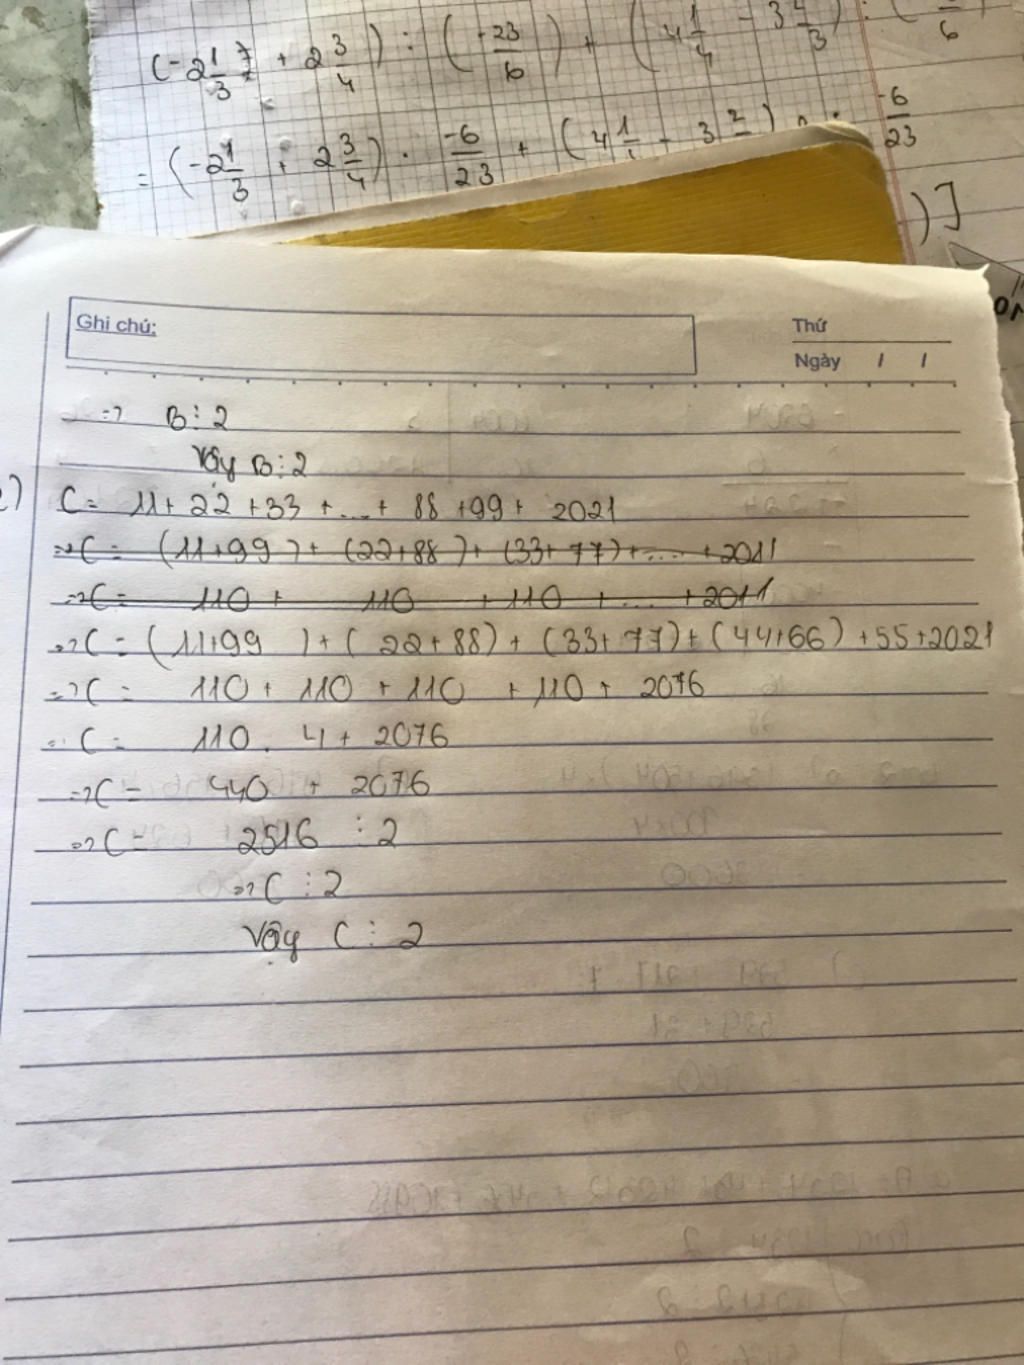 (-2 1/3 + 2 3/4) : (-23/6) + (4 1/4 - 3 /3) : ( /6)
= (-2 1/3 + 2 3/4) . -6/23 + (4 1/ - 3 2/ ) : -6/23
)]
Ghi chú:
Thứ
Ngày / /
=> B ⋮ 2
Vậy B ⋮ 2
c) C = 11 + 22 + 33 + ... + 88 + 99 + 2021
=> C = (11+99) + (22+88) + (33+77) + .... + 2011
=> C = 110 + 110 + 110 + ... + 2011
=> C = (11+99) + (22+88) + (33+77) + (44+66) + 55 + 2021
=> C = 110 + 110 + 110 + 110 + 2076
C = 110 . 4 + 2076
=> C = 440 + 2076
=> C = 2516 ⋮ 2
=> C ⋮ 2
Vậy C ⋮ 2